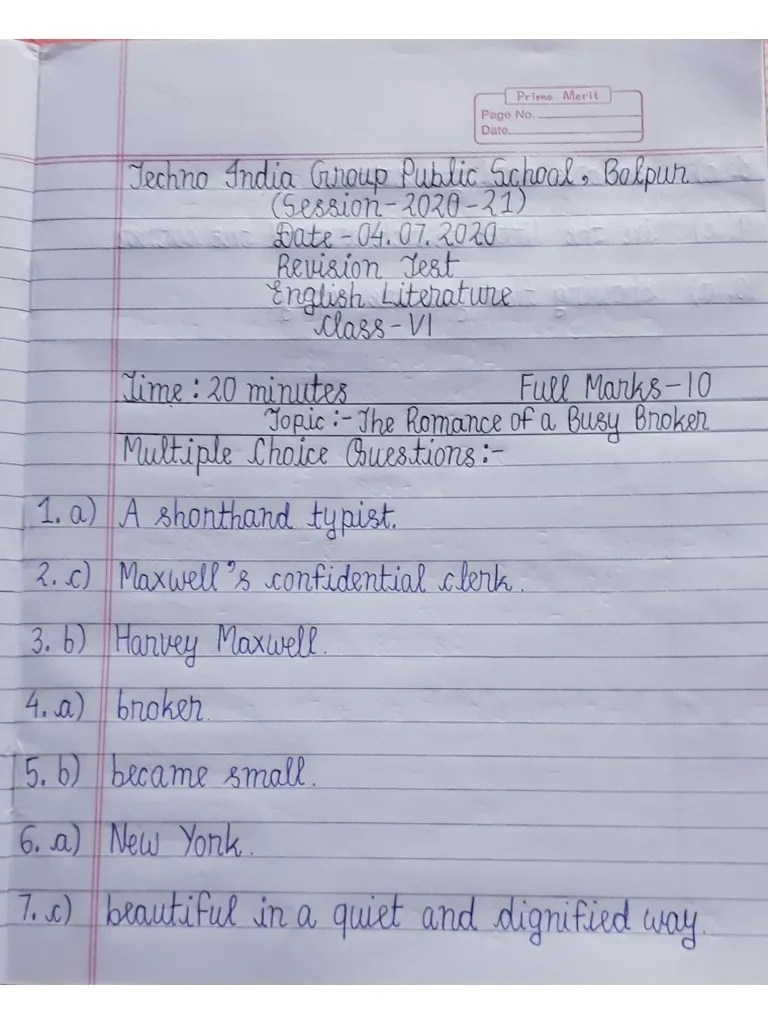 Prime Merit
Page No.
Date
Techno India Group Public School, Bolpur
(Session-2020-21)
Date-04.07.2020
Revision Test
English Literature
Class-VI
Time: 20 minutes Full Marks-10
Topic:- The Romance of a Busy Broker
Multiple Choice Questions:-
1. a) A shorthand typist.
2. c) Maxwell's confidential clerk.
3. b) Harvey Maxwell.
4. a) broker.
5. b) became small.
6. a) New York.
7. c) beautiful in a quiet and dignified way.